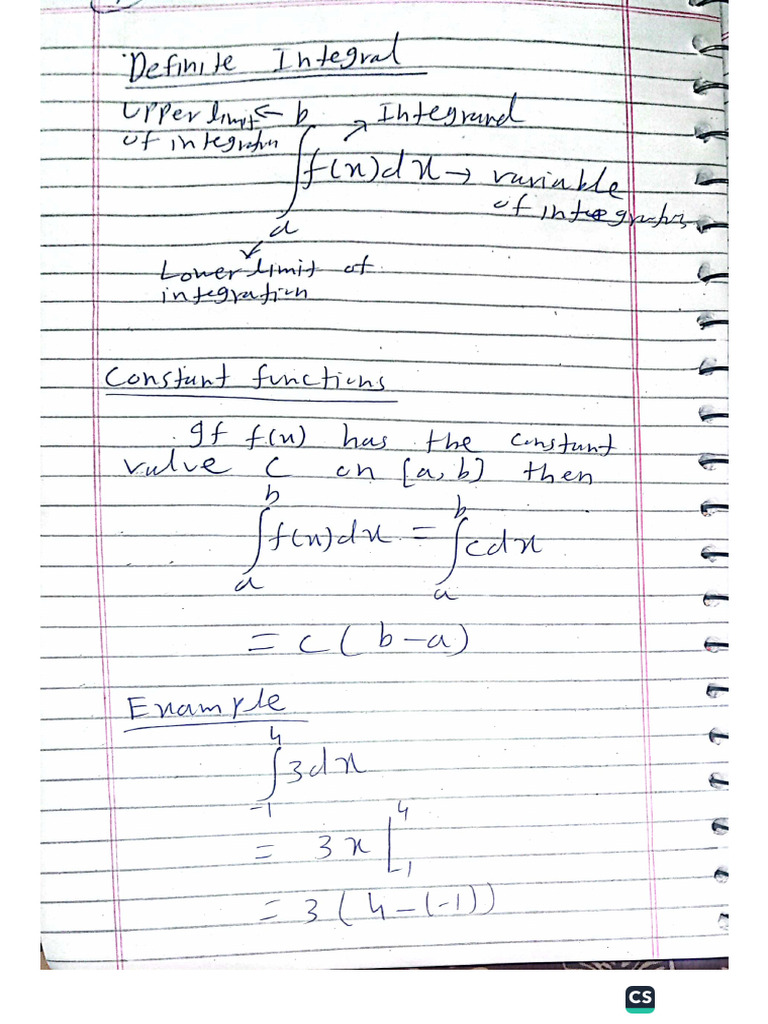 Definite Integral
Upper limit ← b → Integrand
of integration
∫f(x)dx → variable
of integration
a
Lower limit of
integration
Constant functions
If f(x) has the constant
value C on [a, b] then
b b
∫f(x)dx = ∫cdx
a a
= c(b-a)
Example
4
∫3dx
-1
= 3x|
4
-1
= 3(4-(-1))
CS